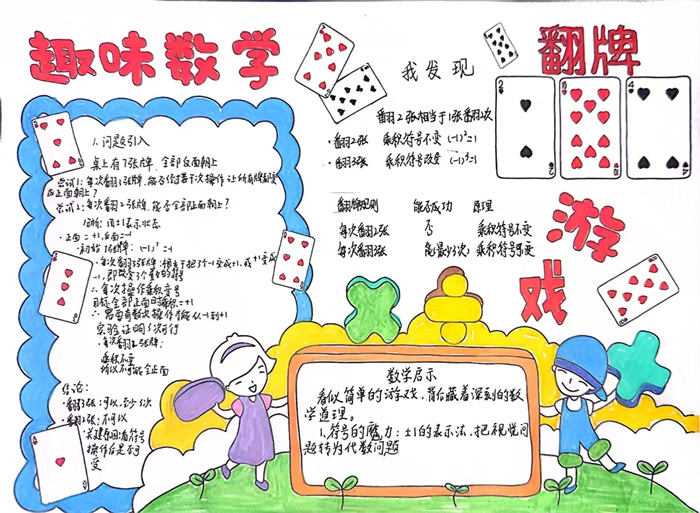 趣味数学
翻牌
游戏
1.问题引入
桌上有7张牌,全部反面朝上
尝试1:每次翻3张牌,能否经过若干次操作让所有牌都变
成正面朝上?
尝试2:每次翻2张牌,能否全部正面朝上?
分析:用±1表示状态
·正面=+1,反面=-1
·初始7张牌:(-1)⁷=-1
·每次翻3张牌:相当于把3个-1变成+1,或+1变成
-1,即改变3个数的符号
∴每次操作乘积变号
目标全部正面时乘积=+1
∴需奇数次操作才能从-1到+1
实验证明3次可行
·每次翻2张牌:
乘积不变
所以不可能全正面
结论:
·翻3张:可以,至少3次
·翻2张:不可以
操作后是否可
变
我发现
翻2张相当于1张翻2次
·翻2张 乘积符号不变 (-1)²=1
·翻3张 乘积符号改变 (-1)³=-1
翻牌规则 能否成功 原理
每次翻2张 否 乘积符号不变
每次翻3张 能(最少3次) 乘积符号改变
数学启示
看似简单的游戏,背后藏着深刻的数
学道理。
1.符号的魔力:±1的表示法,把视觉问
题转为代数问题